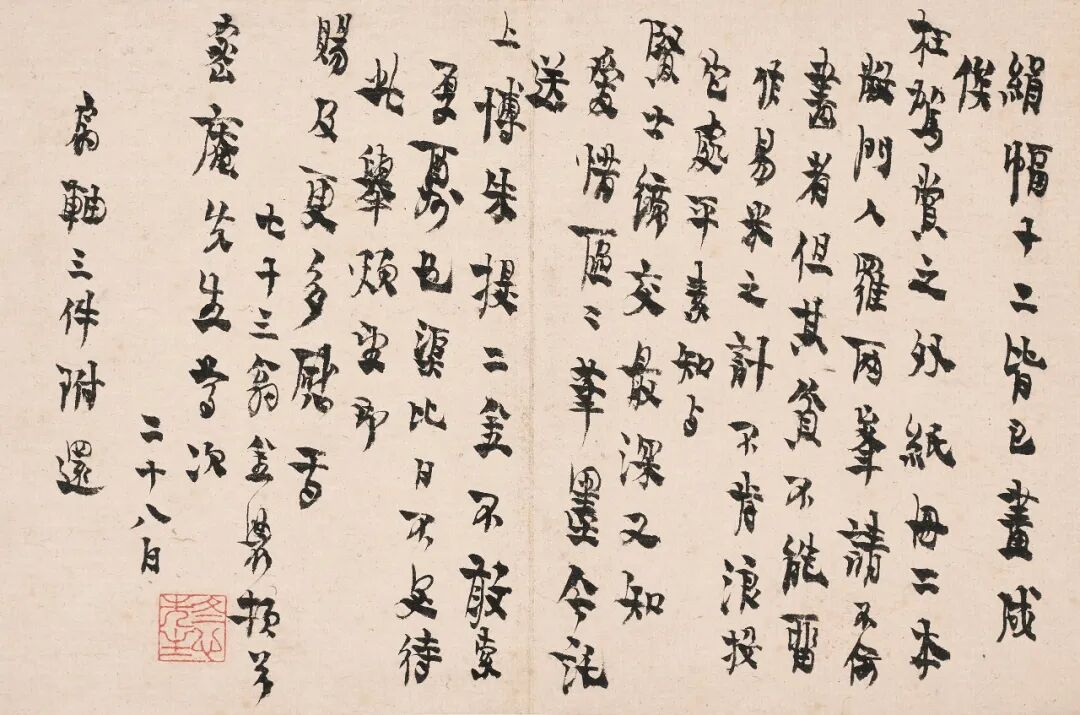 絹幅子二皆已畫成
俟
枉駕賞之外紙冊二本
敝門人羅兩峯請不佞
畫者但其貧不能留
作易米之計不肯浪投
它處平素知與
賢士締交最深又知
愛惜區〻筆墨今託
送
上博朱提二金不敢索
更也渠比日不待
此舉煩望即
賜及更多感耳
七十三翁金農頓首
密庵先生尊次
二十八日
扇軸三件附還
冬心先生